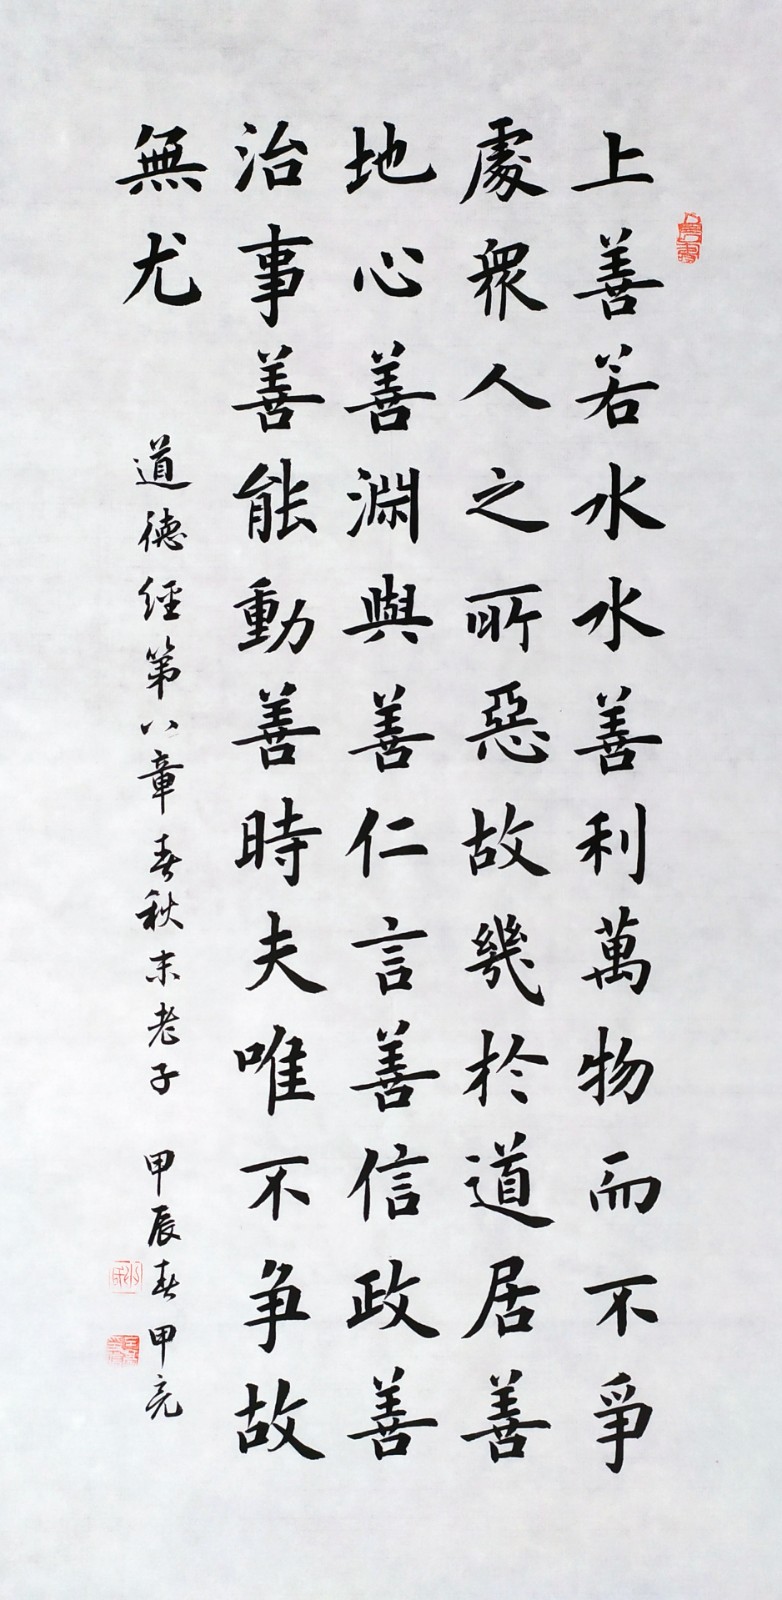 上善若水水善利萬物而不爭
處衆人之所惡故幾於道居善
地心善淵與善仁言善信政善
治事善能動善時夫唯不争故
無尤
道德經第八章春秋末老子 甲辰春甲亮